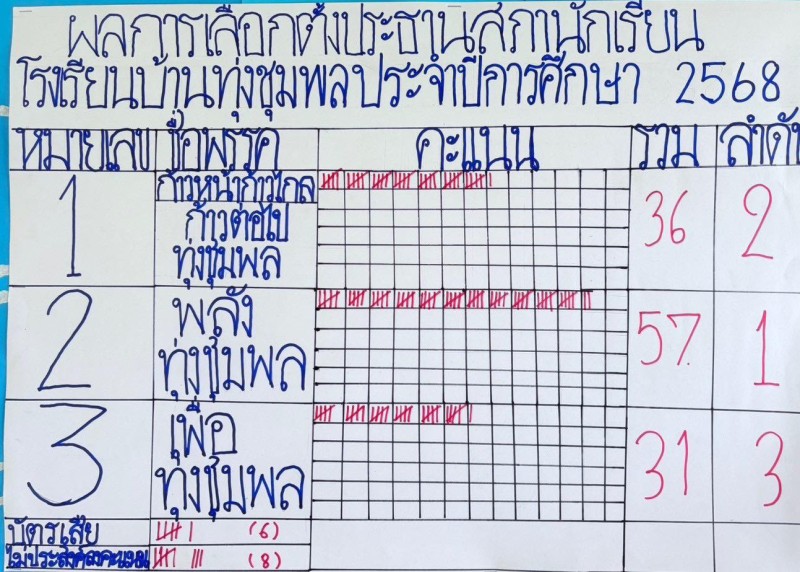 ผลการเลือกตั้งประธานสภานักเรียน
โรงเรียนบ้านทุ่งชุมพลประจำปีการศึกษา 2568
หมายเลข ชื่อพรรค คะแนน รวม ลำดับ
1 ก้าวหน้าก้าวไกล 36 2
ก้าวต่อไป
ทุ่งชุมพล
2 พลัง 57 1
ทุ่งชุมพล
3 เพื่อ 31 3
ทุ่งชุมพล
บัตรเสีย (6)
ไม่ประสงค์ลงคะแนน (8)